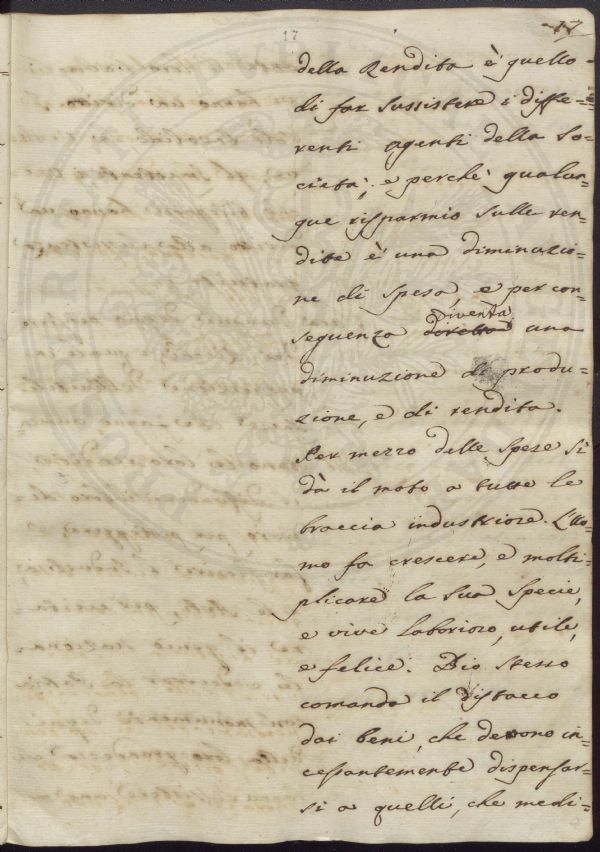 17
17
della Rendita è quello
di far sussistere i diffe=
renti agenti della So=
cietà; e perchè qualun=
que risparmio sulle ren=
dite è una diminuzio=
ne di spesa, e per con=
Diventa
sequenza una
diminuzione di produ=
zione, e di rendita.
Per mezzo delle spese si
dà il moto a tutte le
braccia industriose. L'Uo=
mo fa crescere, e molti=
plicare la sua specie,
e vive laborioso, utile,
e felice. Dio stesso
comanda il distacco
dai beni, che devono in=
cessantemente dispensar=
si a quelli, che medi=